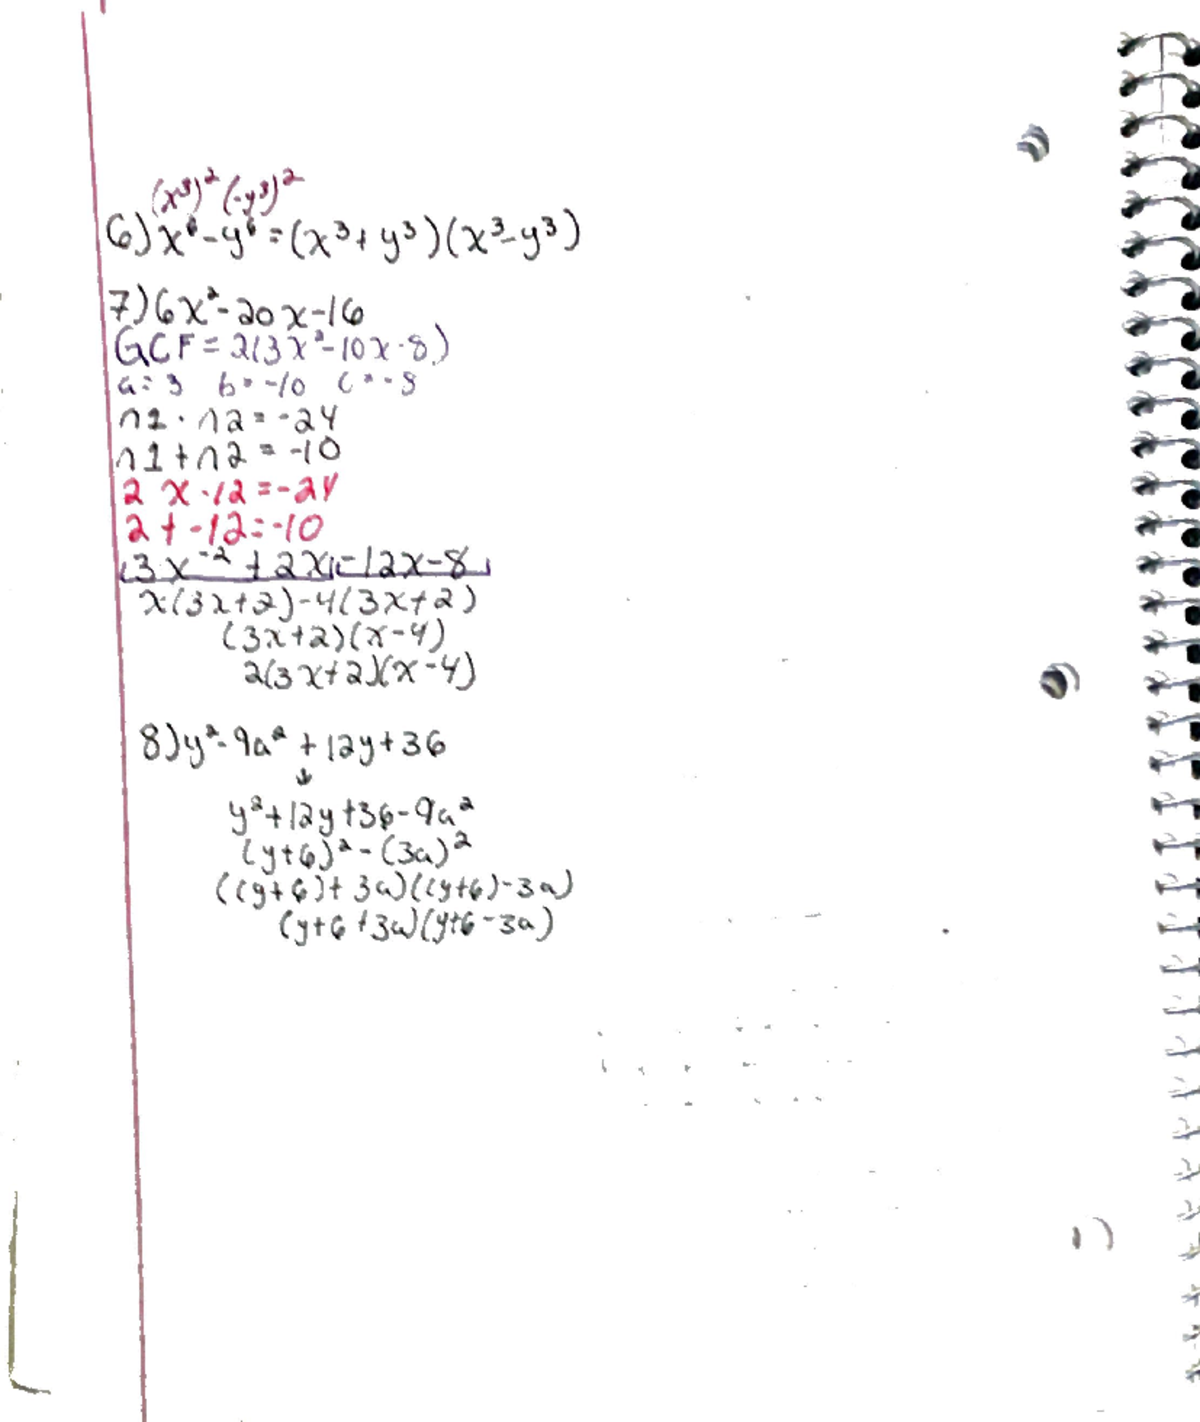 (x³)² (-y³)²
6) x⁶-y⁶=(x³+y³)(x³-y³)
7) 6x²-20x-16
GCF = 2(3x²-10x-8)
a=3 b=-10 c=-8
n1·n2=-24
n1+n2=-10
2 x -12=-24
2+-12=-10
(3x⁻²+2x)(-12x-8)
x(3x+2)-4(3x+2)
(3x+2)(x-4)
2(3x+2)(x-4)
8) y²-9a²+12y+36
↓
y²+12y+36-9a²
(y+6)²-(3a)²
((y+6)+3a)((y+6)-3a)
(y+6+3a)(y+6-3a)